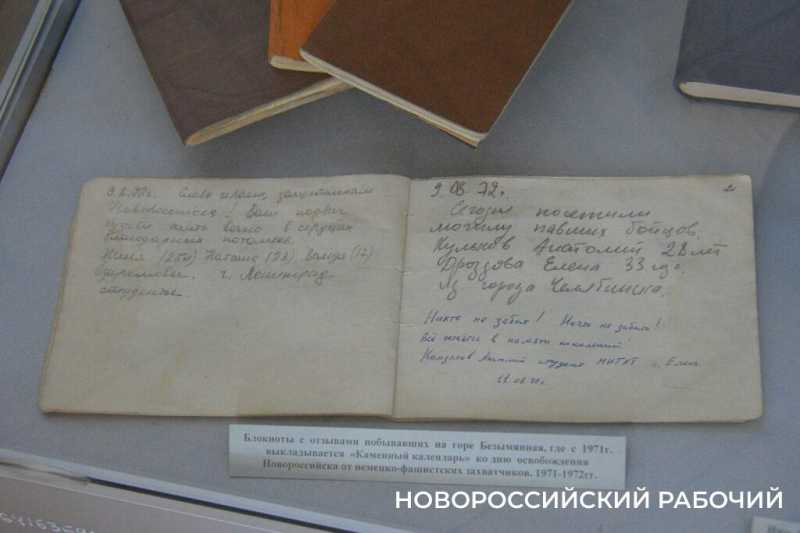 9.8.72г. Слава героям, защитникам
Новороссийска! Ваш подвиг
будет жить вечно в сердцах
благодарных потомков.
Нина (25л) Наташа (22) Валера (17)
г. Ленинград
студенты.
9.08.72г.
Сегодня посетили
могилу павших бойцов.
Анатолий 28 лет
Дроздова Елена 33 года.
Из города Челябинска.
Никто не забыт! Ничто не забыто!
Всё живёт в памяти поколений!
студент г.
Блокноты с отзывами побывавших на горе Безымянная, где с 1971г.
выкладывается «Каменный календарь» ко дню освобождения
Новороссийска от немецко-фашистских захватчиков. 1971-1972гг.
НОВОРОССИЙСКИЙ РАБОЧИЙ